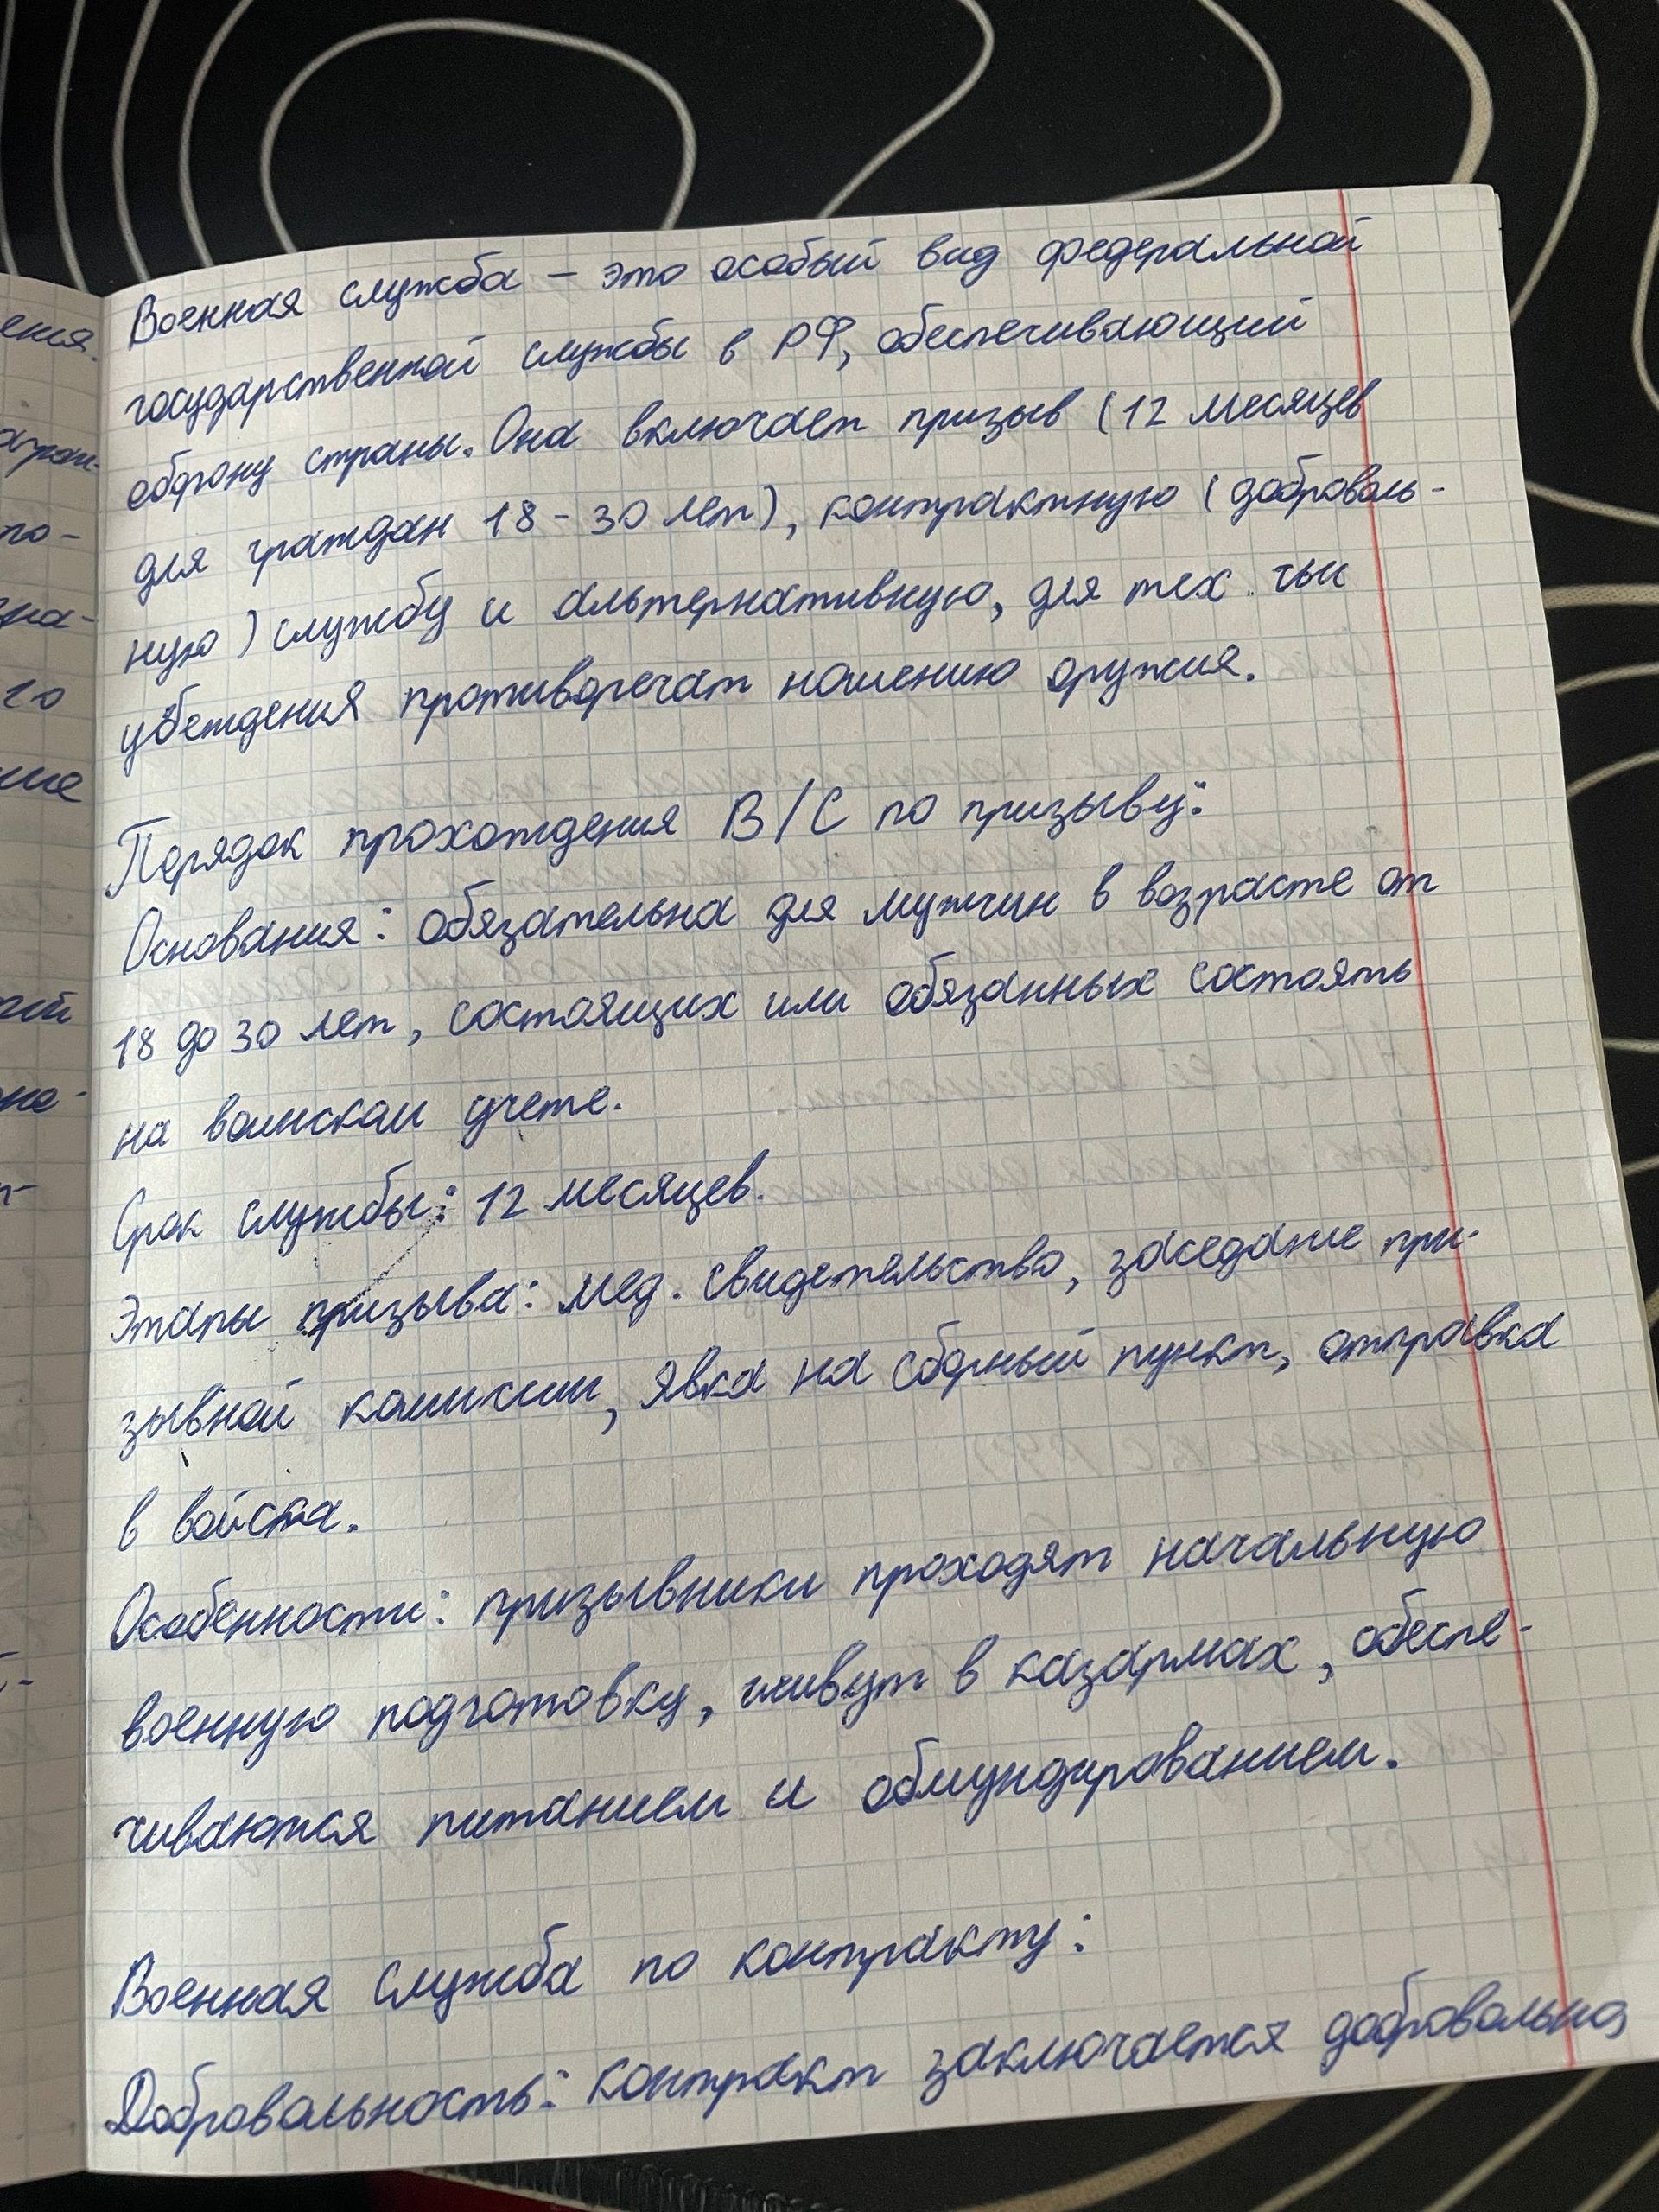 Военная служба – это особый вид федеральной
государственной службы в РФ, обеспечивающий
оборону страны. Она включает призыв (12 месяцев
для граждан 18 - 30 лет), контрактную (доброволь-
ную) службу и альтернативную, для тех чьи
убеждения противоречат ношению оружия.
Порядок прохождения В/С по призыву:
Основания: обязательна для мужчин в возрасте от
18 до 30 лет, состоящих или обязанных состоять
на воинском учете.
Срок службы: 12 месяцев.
Этапы призыва: мед. свидетельство, заседание при-
зывной комиссии, явка на сборный пункт, отправка
в войска.
Особенности: призывники проходят начальную
военную подготовку, живут в казармах, обеспе-
чиваются питанием и обмундированием.
Военная служба по контракту:
Добровольность: контракт заключается добровольно,